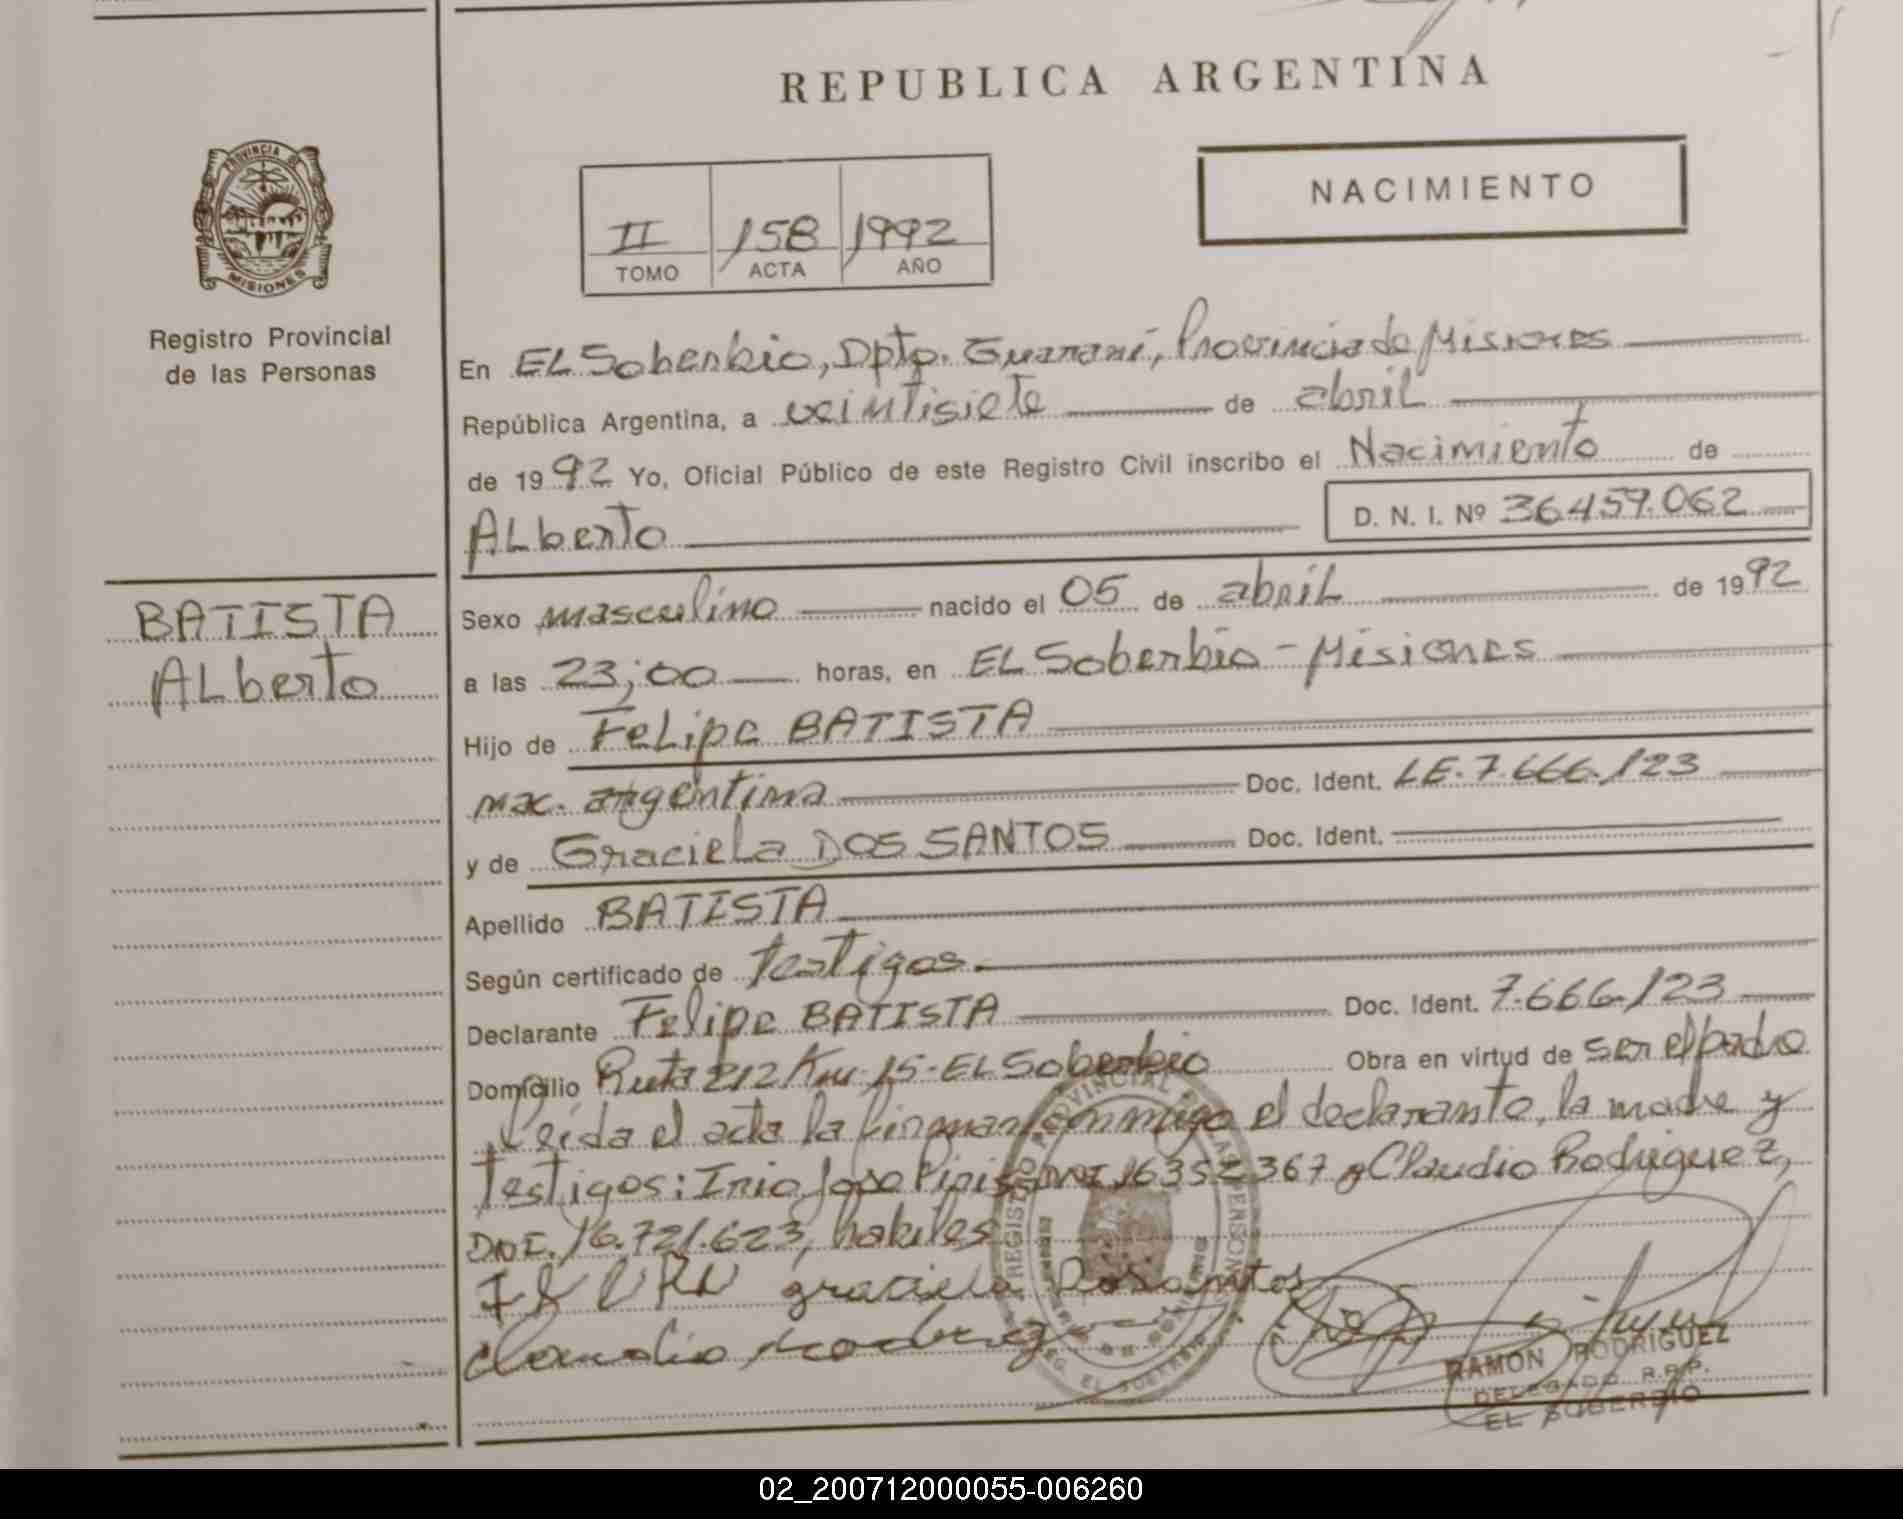 REPUBLICA ARGENTINA
PROVINCIA DE MISIONES
Registro Provincial
de las Personas
NACIMIENTO
II 158 1992
TOMO ACTA AÑO
En EL Soberbio, Dpto. Guaraní, Provincia de Misiones
República Argentina, a veintisiete de abril
de 1992 Yo, Oficial Público de este Registro Civil inscribo el Nacimiento de
ALberto D. N. I. Nº 36.459.062
BATISTA
ALberto
Sexo masculino nacido el 05 de abril de 1992
a las 23;00 horas, en EL Soberbio - Misiones
Hijo de FeLipe BATISTA
nac. argentina Doc. Ident. LE. 7.666.123
y de GracieLa DOS SANTOS Doc. Ident.
Apellido BATISTA
Según certificado de testigos.
Declarante Felipe BATISTA Doc. Ident. 7.666.123
Domicilio Ruta 212 Km 15 - EL Soberbio Obra en virtud de ser el padre
Leída el acta la firman conmigo el declarante, la madre y
testigos: Irio Jose DNI 16352367 y Claudio Rodriguez,
DNI. 16.721.623, habiles
graciela Dosantos
Claudio
REGISTRO PROVINCIAL DE LAS PERSONAS
EL SOBERBIO
RAMON RODRIGUEZ
DELEGADO R.P.P.
EL SOBERBIO
02_200712000055-006260